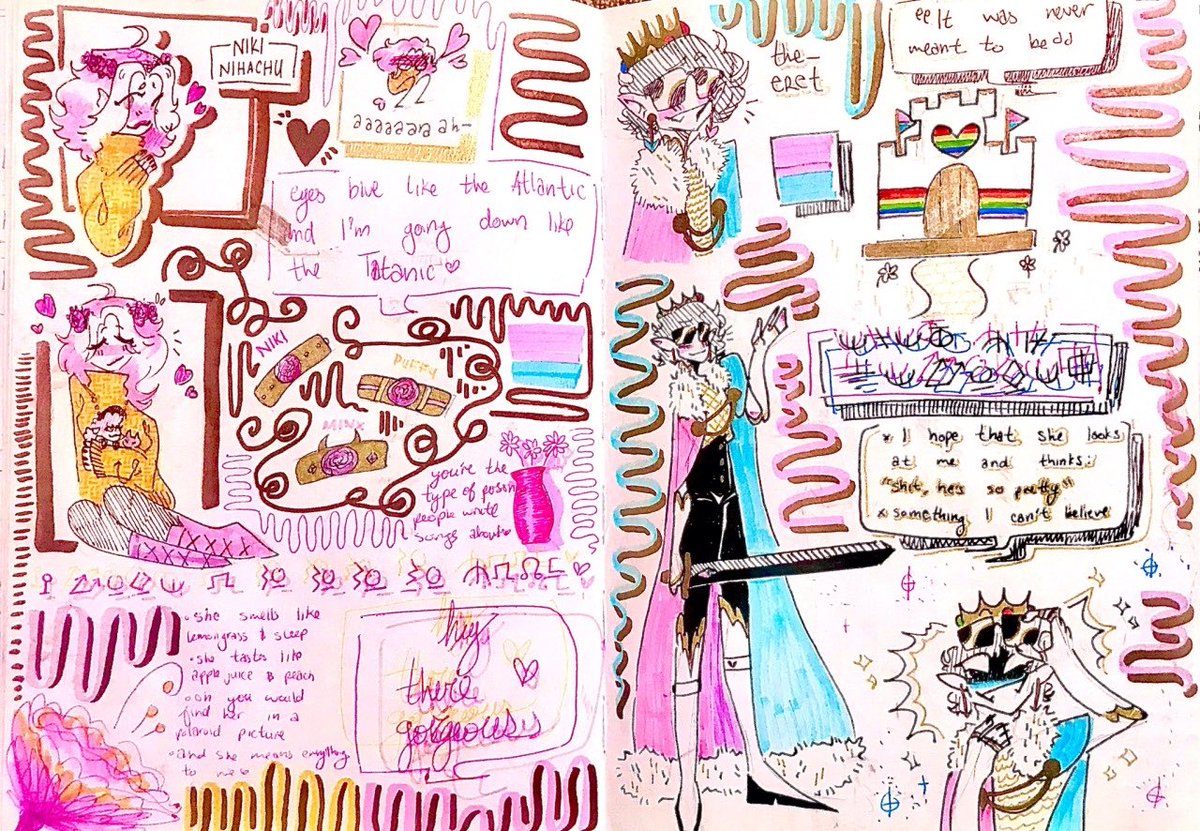 NIKI
NIHACHU
aaaaaaa ah-
eyes blue like the Atlantic
and I'm going down like
the Titanic
NIKI
PUFFY
MINX
you're the
type of person
people write
songs about
• she smells like
lemongrass & sleep
• she tastes like
apple juice & peach
• oh you would
find her in a
polaroid picture
• and she means everything
to me
hey
there
gorgeous
the-
eret
"It was never
meant to be"
* I hope that she looks
at me and thinks:
"shit, he's so pretty"
* something I can't believe